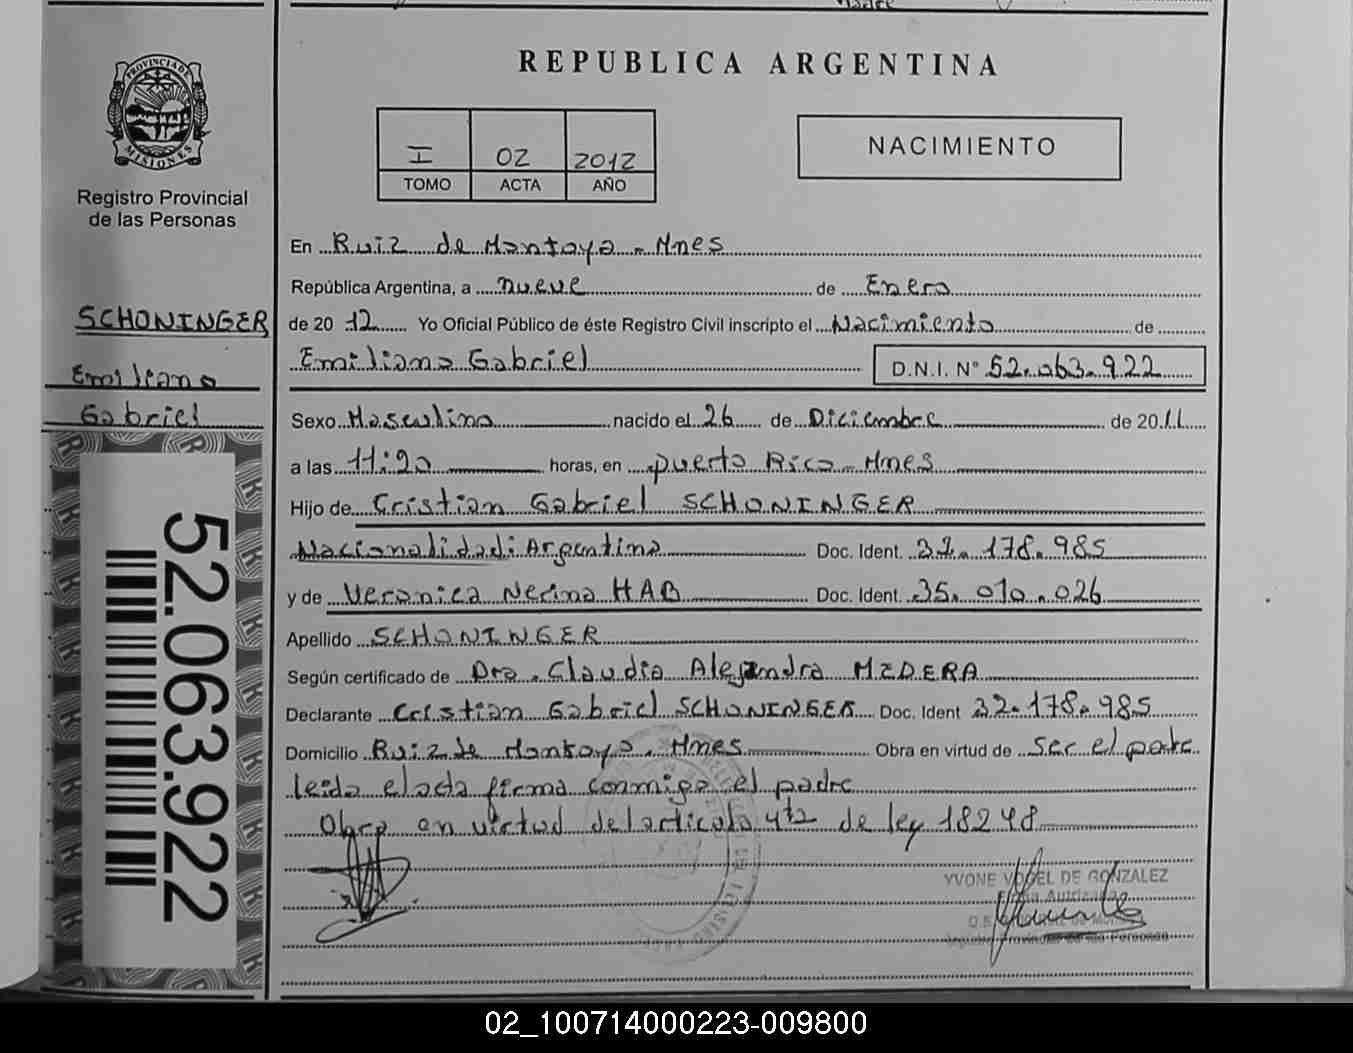 REPUBLICA ARGENTINA
PROVINCIA DE
MISIONES
Registro Provincial
de las Personas
I 02 2012
TOMO ACTA AÑO
NACIMIENTO
SCHONINGER
Emiliano
Gabriel
52.063.922
En Ruiz de Montoya - Mnes
República Argentina, a nueve de Enero
de 20 12 Yo Oficial Público de éste Registro Civil inscripto el Nacimiento de
Emiliano Gabriel D.N.I. N° 52.063.922
Sexo Masculino nacido el 26 de Diciembre de 20 11
a las 11:20 horas, en puerto Rico - Mnes
Hijo de Cristian Gabriel SCHONINGER
Nacionalidad: Argentina Doc. Ident. 32.178.985
y de Veronica Nerina HAB Doc. Ident. 35.010.026
Apellido SCHONINGER
Según certificado de Dra. Claudia Alejandra MEDERA
Declarante Cristian Gabriel SCHONINGER Doc. Ident 32.178.985
Domicilio Ruiz de Montoya. Mnes Obra en virtud de ser el padre
leida el acta firma conmigo el padre
Obra en virtud del articulo 4to de ley 18248
YVONE VOGEL DE GONZALEZ
02_100714000223-009800